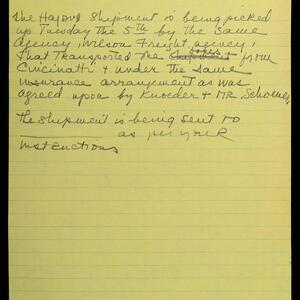 The Hapou Shipment is being picked
up Tuesday the 5th by the same
Agency, Wilson Freight agency,
that transported the cases from
Cincinatti & under the same
insurance arrangement as was
agreed upon by Knoeder & MR.
The shipment is being sent to
as per your
instructions